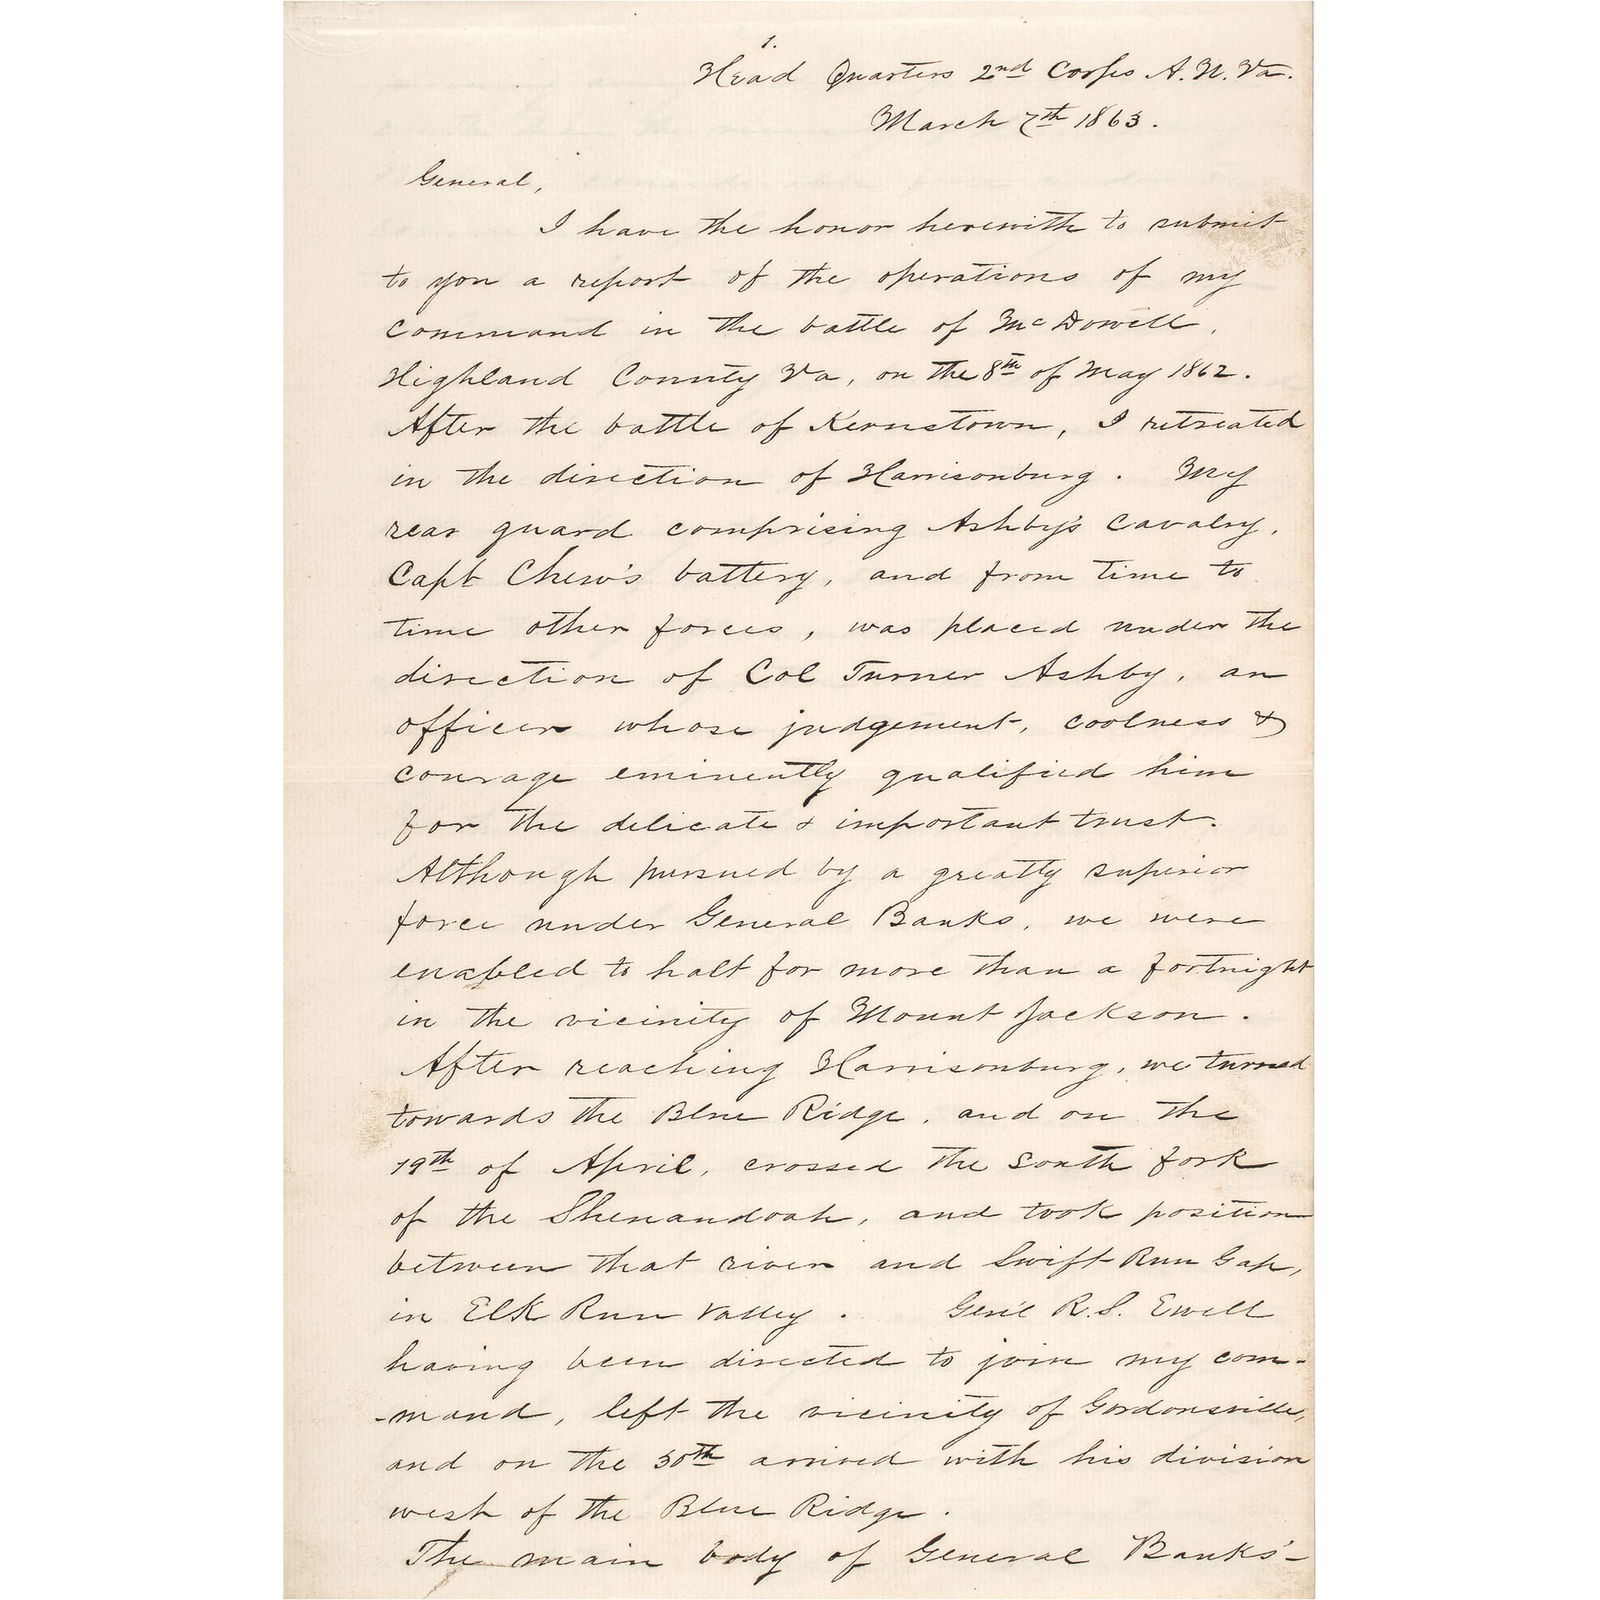 1.
Head Quarters 2nd Corps A. N. Va.
March 7th 1863.
General,
I have the honor herewith to submit
to you a report of the operations of my
command in the battle of McDowell,
Highland County Va, on the 8th of May 1862.
After the battle of Kernstown, I retreated
in the direction of Harrisonburg. My
rear guard comprising Ashby's Cavalry,
Capt Chew's battery, and from time to
time other forces, was placed under the
direction of Col Turner Ashby, an
officer whose judgement, coolness &
courage eminently qualified him
for the delicate & important trust.
Although pursued by a greatly superior
force under General Banks, we were
enabled to halt for more than a fortnight
in the vicinity of Mount Jackson.
After reaching Harrisonburg, we turned
towards the Blue Ridge, and on the
19th of April, crossed the South fork
of the Shenandoah, and took position
between that river and Swift Run Gap,
in Elk Run Valley. Gen'l R. S. Ewell
having been directed to join my com-
-mand, left the vicinity of Gordonsville,
and on the 30th arrived with his division
west of the Blue Ridge.
The main body of General Banks'-